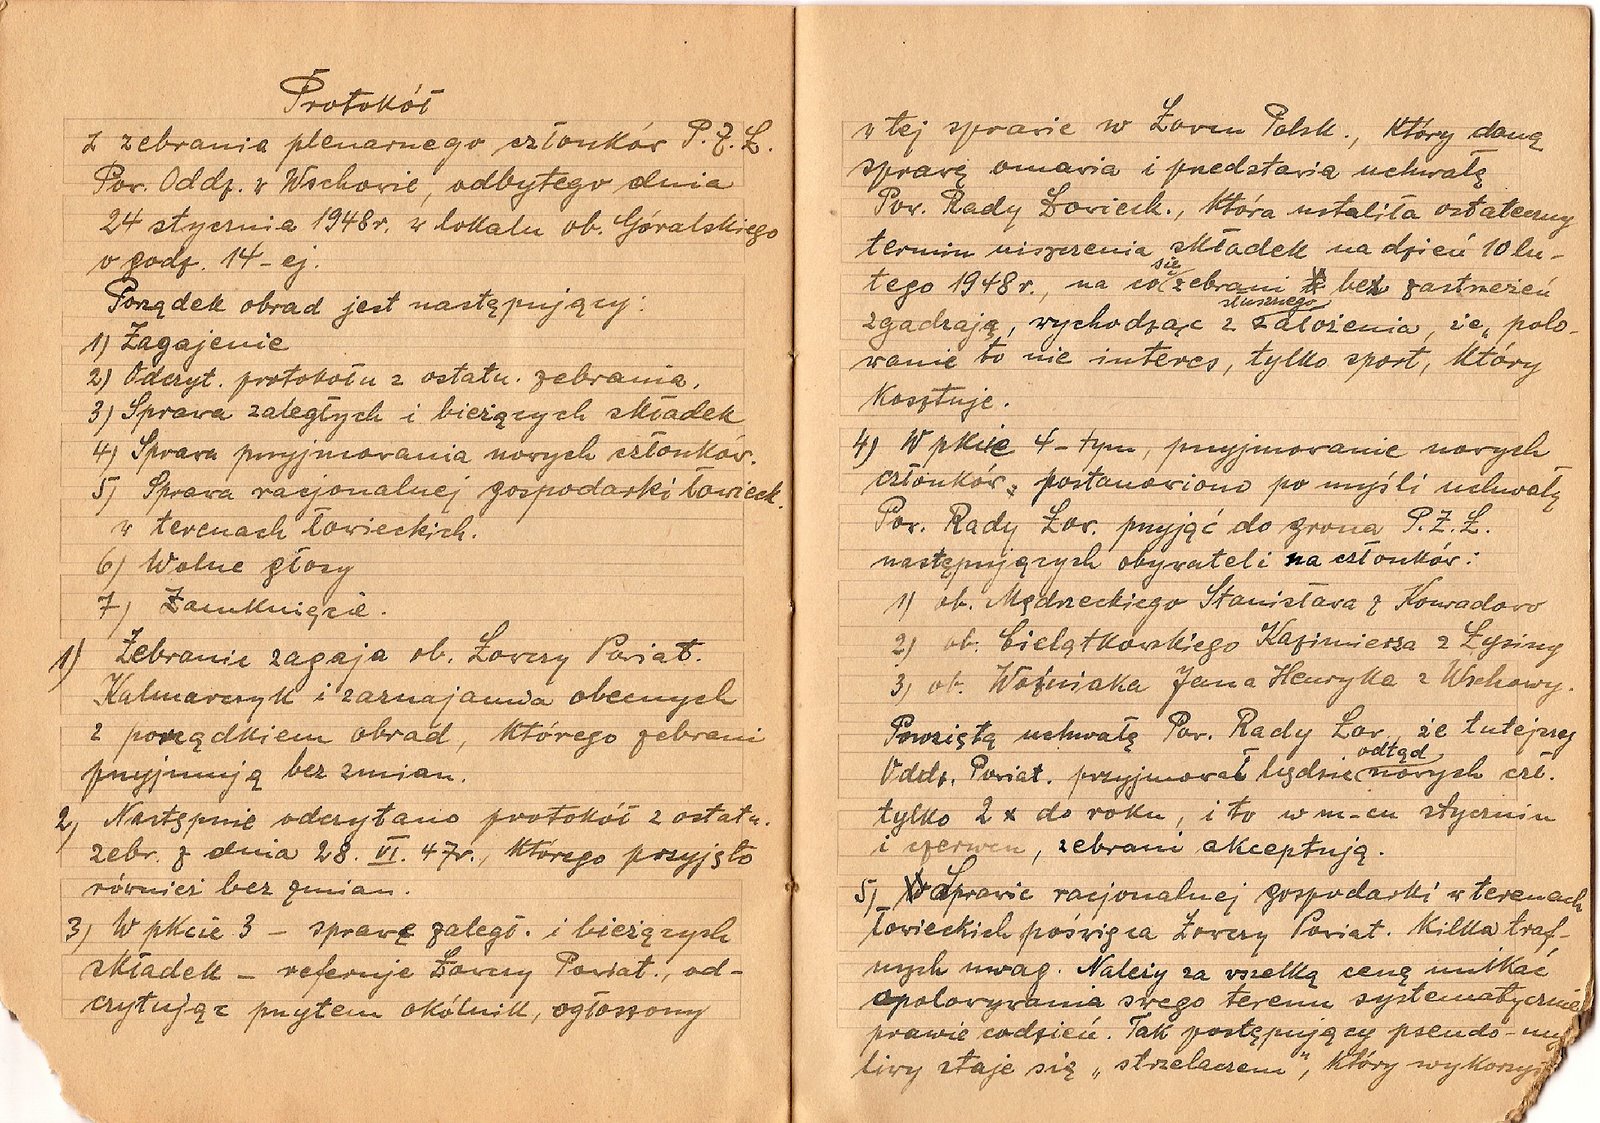 Protokół
z zebrania plenarnego członków P.Z.Ł.
Pow. Oddz. w Wschowie, odbytego dnia
24 stycznia 1948r. w lokalu ob. Góralskiego
o godz. 14-ej.
Porządek obrad jest następujący:
1) Zagajenie
2) Odczyt. protokołu z ostatn. zebrania.
3) Sprawa zaległych i bieżących składek
4) Sprawa przyjmowania nowych członków.
5) Sprawa racjonalnej gospodarki łowieck.
w terenach łowieckich.
6) Wolne głosy
7) Zamknięcie.
1) Zebranie zagaja ob. Łowczy Powiat.
Kalmarczyk i zaznajamia obecnych
z porządkiem obrad, którego zebrani
przyjmują bez zmian.
2) Następnie odczytano protokół z ostatn.
zebr. z dnia 28. VI. 47r., którego przyjęto
również bez zmian.
3) W pkcie 3 – sprawę zaległ. i bieżących
składek – referuje Łowczy Powiat., od-
czytując przytem okólnik, ogłoszony
w tej sprawie w Łowcu Polsk., który daną
sprawę omawia i przedstawia uchwałę
Pow. Rady Łowieck., która ustaliła ostateczny
termin uiszczenia składek na dzień 10 lu-
tego 1948r., na co się zebrani bez zastrzeżeń
zgadzają, wychodząc z słusznego założenia, że „polo-
wanie to nie interes, tylko sport, który
kosztuje.
4) W pkcie 4-tym, przyjmowanie nowych
członków, postanowiono po myśli uchwały
Pow. Rady Łow. przyjąć do grona P.Z.Ł.
następujących obywateli na członków:
1) ob. Mędrzeckiego Stanisława z Konradowo
2) ob. Cielątkowskiego Kazimierza z Łysiny
3) ob. Woźniaka Jana Henryka z Wschowy.
Powziętą uchwałę Pow. Rady Łow., że tutejszy
Oddz. Powiat. przyjmował będzie odtąd nowych czł.
tylko 2 x do roku, i to w m-cu styczniu
i czerwcu, zebrani akceptują.
5) Sprawie racjonalnej gospodarki w terenach
łowieckich poświęca Łowczy Powiat. kilka traf-
nych uwag. Należy za wszelką cenę unikać
opolowywania swego terenu systematycznie
prawie codzień. Tak postępujący pseudo-my
śliwy staje się „strzelaczem”, który wykorzys